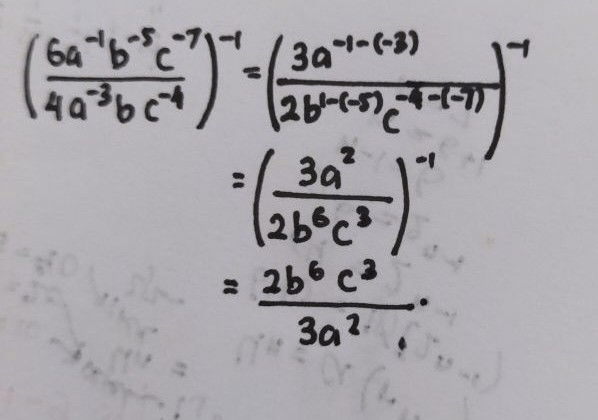 (6a⁻¹b⁻⁵c⁻⁷ / 4a⁻³bc⁻⁴)⁻¹ = (3a⁻¹⁻⁽⁻³⁾ / 2b¹⁻⁽⁻⁵⁾c⁻⁴⁻⁽⁻⁷⁾)⁻¹
= (3a² / 2b⁶c³)⁻¹
= 2b⁶c³ / 3a².